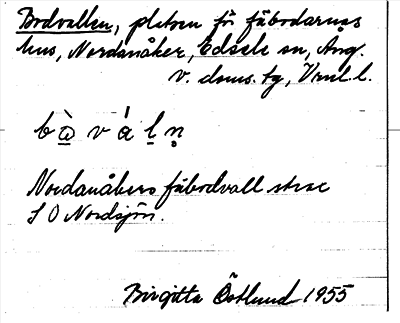 Bodvallen, platsen för fäbodarnas
hus, Nordanåker, Edsele sn, Ång.
v. doms. tg, Vml. l.
bò̱ váḻn̥
Nordanåkers fäbodvall strax
S O Nordsjön.
Birgitta Östlund 1955